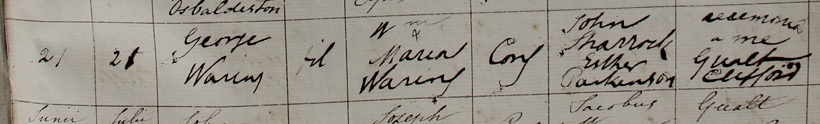 Osbaldeston
21 21 George Waring fil Wm & Maria Waring Conj John Sharrock Esther Parkinson a me Gualt Clifford
Junii Julii Joseph Jacobus Gualt